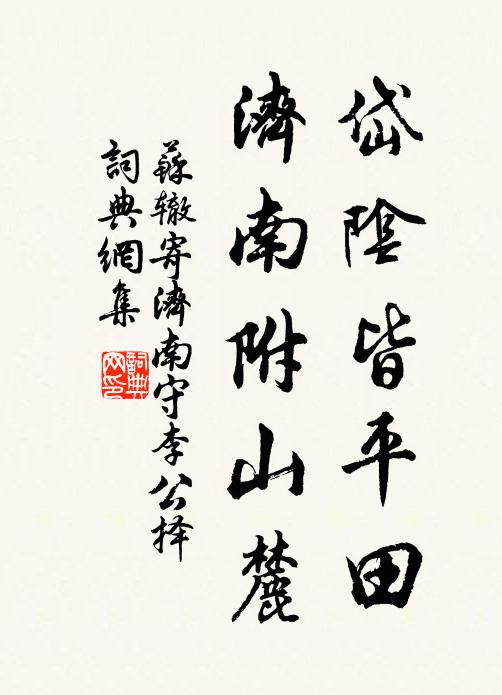 岱陰皆平田
濟南附山麓
蘇辙寄濟南守李公择
詞典網集
詞典网印